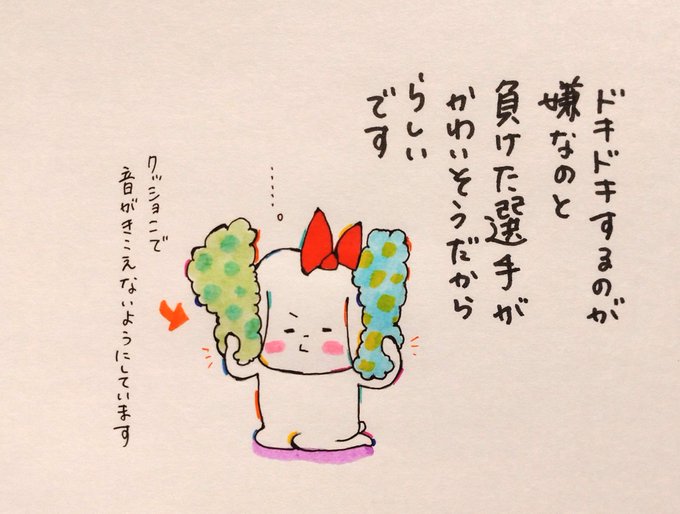 ドキドキするのが
嫌なのと
負けた選手が
かわいそうだから
らしい
です
クッションで
音がきこえないようにしています